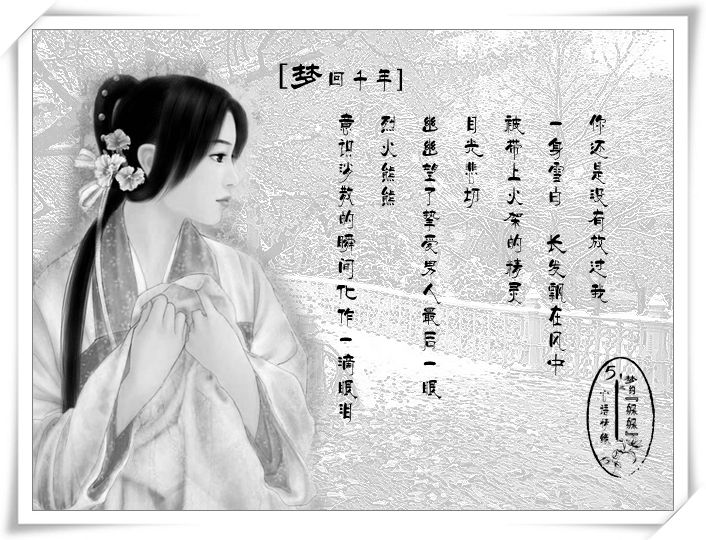 [梦回千年]
你还是没有放过我
一身雪白 长发飘在风中
被带上火架的精灵
目光悲切
幽幽望了挚爱男人最后一眼
烈火熊熊
意识涉散的瞬间化作一滴眼泪
梦的『躲躲』